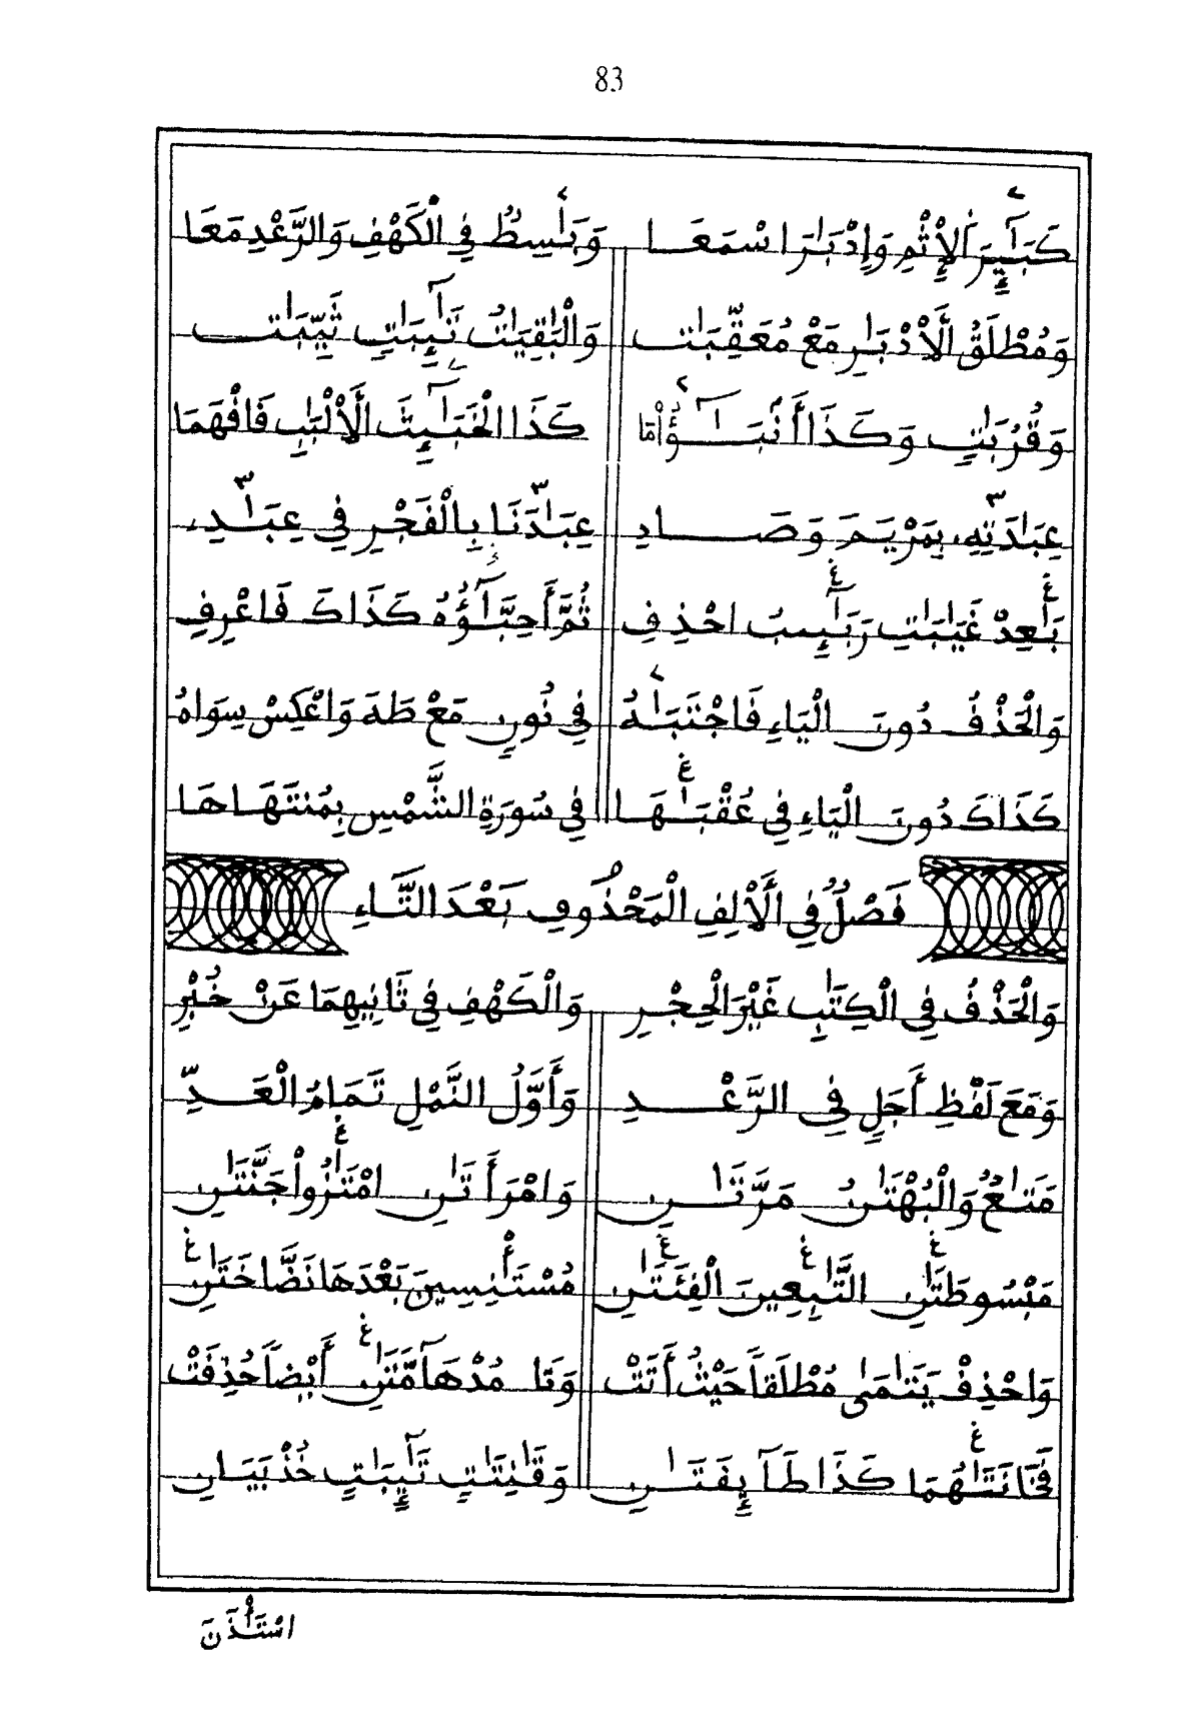 83
كَبَٰٓئِرَ ٱلْإِثْمِ وَإِدْبَٰرَ اسْمَعَا وَبَٰسِطٌ فِي الْكَهْفِ وَالرَّعْدِ مَعَا
وَمُطْلَقُ الَّأَدْبَٰرِ مَعْ مُعَقِّبَٰتْ وَالْبَٰقِيَٰتُ تَٰٓئِبَٰتٍ ثَيِّبَٰتْ
وَقُرُبَٰتٍ وَكَذَا أَنْبَٰٓؤُاْ مَا كَذَا الْخَبَٰٓئِثَ الَّأَلْبَٰبِ فَافْهَمَا
عِبَٰدَتِّهِ، بِمَرْيَمَ وَصَادِ عِبَٰدَنَا بِالْفَجْرِ فِي عِبَٰدِ،
بَٰعِدْ غَيَٰبَٰتِ رَبَٰٓئِبُ احْذِفِ ثُمَّ أَحِبَّٰٓؤُهُ كَذَاكَ فَاعْرِفِ
وَالْحَذْفُ دُونَ الْيَاءِ فَاجْتَبَٰهُ فِي نُونٍ مَعْ طَهَ وَاعْكِسْ سِوَاهُ
كَذَاكَ دُونَ الْيَاءِ فِي عُقْبَٰهَا فِي سُورَةِ الشَّمْسِ بِمُنتَهَاهَا
فَصْلٌ فِي الَّأَلِفِ الْمَحْذُوفِ بَعْدَ التَّاءِ
وَالْحَذْفُ فِي الْكِتَٰبِ غَيْرَ الْحِجْرِ وَالْكَهْفِ فِي ثَانِيهِمَا عَنْ خُبْرِ
وَمَعَ لَفْظِ أَجَلٍ فِي الرَّعْدِ وَأَوَّلُ النَّمْلِ تَمَامُ الْعَدِّ
مَتَٰعٌ وَالْبُهْتَٰنُ مَرَّتَٰنِ وَامْرَأَتَٰنِ امْتَٰزُواْ جَنَّتَٰنِ
مَبْسُوطَتَٰنِ التَّٰبِعِينَ الْفِئَتَٰنِ مُسْتَـْٔنِسِينَ بَعْدَهَا نَضَّاخَتَٰنِ
وَاحْذِفْ يَتَٰمَىٰ مُطْلَقاً حَيْثُ أَتَتْ وَتَا مُدْهَآمَّتَٰنِ أَيْضاً حُذِفَتْ
فَخَانَتَٰهُمَا كَذَا طَآئِفَتَٰنِ وَقَٰنِتَٰتٍ تَٰٓئِبَٰتٍ خُذْ بَيَانِ
اسْتَـْٔذَنَ